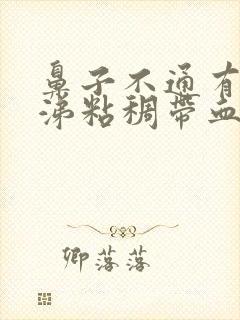 鼻子不通有
涕粘稠带血
卿落落